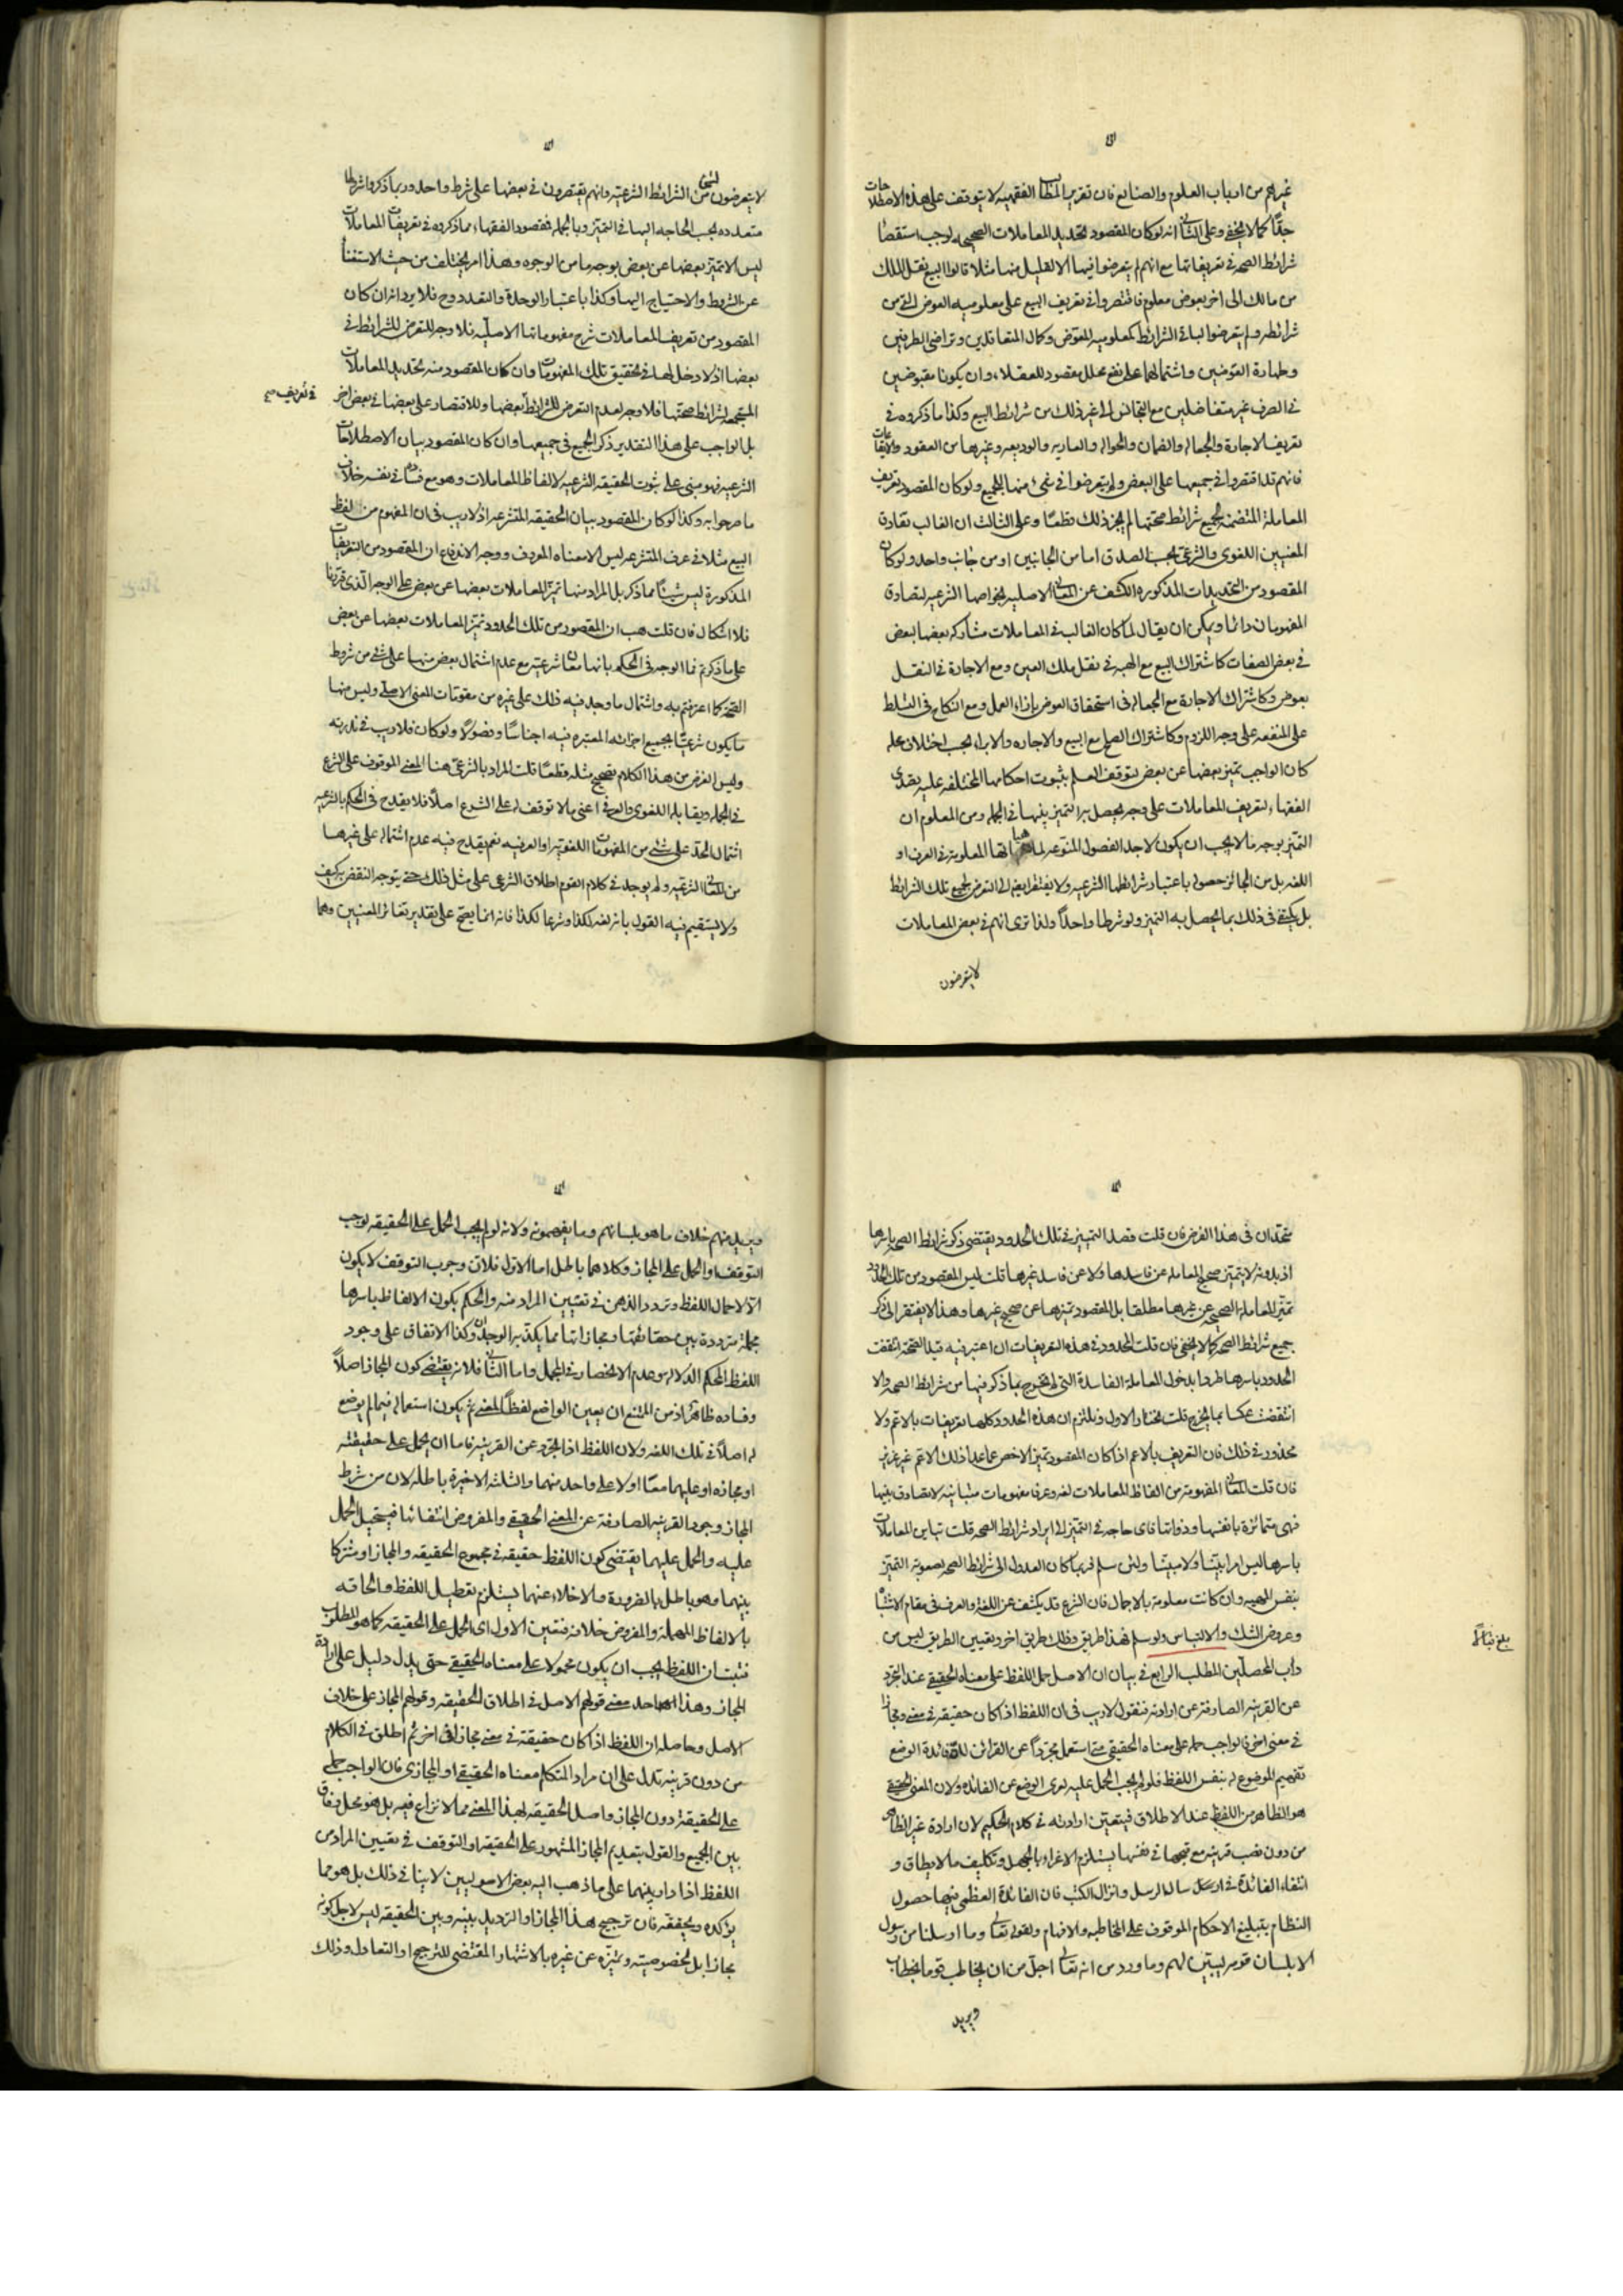 غيرهم من ارباب العلوم والصنايع فان تقرير المطالب الفقهيه لا يتوقف على هذه الاصطلاحات
جدًّا كما لا يخفى وعلى الثانى انه لو كان المقصود تحديد المعاملات الصحيحه لوجب استقصاء
شرائط الصحه في تعريفاتها مع انهم لم يتعرضوا فيها الا لقليل منها مثلا قالوا البيع نقل الملك
من مالك الى اخر بعوض معلوم فاقتصروا في تعريف البيع على معلوميه العوض التي من
شرائطه ولم يتعرضوا لباقى الشرائط كمعلوميه المعوّض وكمال المتعاقدين وتراضى الطرفين
وطهارة العوضين واشتمالهما على نفع محلل مقصود للعقلاء وان يكونا مقبوضين
في الصرف غير متفاضلين مع التجانس الى غير ذلك من شرائط البيع وكذا ما ذكروه في
تعريف الاجارة والجعاله والضمان والحواله والعاريه والوديعه وغيرها من العقود والايقاعات
فانهم قد اقتصروا في جميعها على البعض ولم يتعرضوا في شئ منها للجميع ولو كان المقصود تعريف
المعاملة المتضمنة لجميع شرائط صحتها لم يجز ذلك قطعًا وعلى الثالث ان الغالب تصادق
المعنيين اللغوى والشرعى بحسب الصدق اما من الجانبين او من جانب واحد ولو كان
المقصود من التحديدات المذكوره الكشف عن المعانى الاصليه بخواصها الشرعيه لتصادق
المفهومان دائما ويمكن ان يقال لما كان الغالب في المعاملات مشاركه بعضها لبعض
في بعض الصفات كاشتراك البيع مع الهبه في نقل ملك العين ومع الاجارة في النقل
بعوض وكاشتراك الاجارة مع الجعاله في استحقاق العوض بإزاء العمل ومع النكاح في التسلط
على المنفعه على وجه اللزوم وكاشتراك الصلح مع البيع والاجاره والابراء بحسب اختلاف محله
كان الواجب تميز بعضها عن بعض لتوقف العلم بثبوت احكامها المختلفه عليه تصدى
الفقهاء لتعريف المعاملات على وجه يحصل به التميز بينها في الجمله ومن المعلوم ان
التميز بوجه ما لا يجب ان يكون لاجد الفصول المنوعه لماهياتها المعلومة في العرف او
اللغه بل من الجائز حصوله باعتبار شرائطها الشرعيه ولا يفتقر ايضا الى التعرض لجميع تلك الشرائط
بل يكتفى في ذلك بما يحصل به التميز ولو شرطا واحدًا ولذا ترى انهم في بعض المعاملات
لا يتعرضون
لا يتعرضون لشئ من الشرائط الشرعيه وانهم يقتصرون في بعضها على شرط واحد وربما ذكروا شروطا
متعدده بحسب الحاجه اليها في التميز وبالجمله فمقصود الفقهاء مما ذكروه في تعريفات المعاملات
ليس الا تميز بعضها عن بعض بوجه ما من الوجوه وهذا امر يختلف من حيث الاستغناء
عن الشروط والاحتياج اليها وكذا باعتبار الوحدة والتعدد وح فلا يرد انه ان كان
المقصود من تعريف المعاملات شرح مفهوماتها الاصليّه فلا وجه للتعرض للشرائط في
بعضها اذ لا دخل لها في تحقيق تلك المفهومات وان كان المقصود منه تحديد المعاملات
المستجمعه لشرائط صحتها فلا وجه لعدم التعرض للشرائط في تعريف بعضها وللاقتصار على بعضها في بعض اخر
بل الواجب على هذا التقدير ذكر الجميع في جميعها وان كان المقصود بيان الاصطلاحات
الشرعيه فهو مبنى على ثبوت الحقيقه الشرعيه لالفاظ المعاملات وهو مع فساده في نفسه خلاف
ما صرحوا به وكذا لو كان المقصود بيان الحقيقه المتشرعه اذ لا ريب فى ان المفهوم من لفظ
البيع مثلا في عرف المتشرعه ليس الا معناه المعروف ووجه الاندفاع ان المقصود من التعريفات
المذكورة ليس شيئًا مما ذكر بل المراد منها تميز المعاملات بعضها عن بعض على الوجه الذى قررنا
فلا اشكال فان قلت هب ان المقصود من تلك الحدود تميز المعاملات بعضها عن بعض
على ما ذكرتم فما الوجه في الحكم بانها معان شرعيه مع عدم اشتمال بعض منها على شئ من شروط
الصحة كما اعترفتم به واشتمال ما وجد فيه ذلك على غيره من مقومات المعنى الاصلى وليس منها
ما يكون شرعيًّا بجميع اجزائه المعتبره فيه اجناسًا وفصولًا ولو كان فلا ريب في ندرته
وليس الغرض من هذا الكلام تصحيح مثله قطعًا قلت المراد بالشرعى هنا المعنى الموقوف على الشرع
في الجمله ويقابله اللغوى والعرفى اعنى ما لا توقف له على الشرع اصلًا فلا يقدح فى الحكم بالشرعيه
اشتمال الحد على شئ من المفهومات اللغوية او العرفيه نعم يقدح فيه عدم اشتماله على غيرها
من المعانى الشرعيه ولم يوجد في كلام القوم اطلاق الشرعى على مثل ذلك حتى يتوجه النقض به كيف
ولا يستقيم فيه القول بانه لغه لكذا وشرعا لكذا فانه انما يصح على تقدير تغائر المعنيين وهما
في تعريف صح
متحدان في هذا الفرض فان قلت قصد التمييز في تلك الحدود يقتضى ذكر شرائط الصحه باسرها
اذ بدونه لا يتميز صحيح المعامله عن فاسدها ولا عن فاسد غيرها قلت ليس المقصود من تلك الحدود
تميّز المعاملة الصحيحه عن غيرها مطلقا بل المقصود تميزها عن صحيح غيرها وهذا لا يفتقر الى ذكر
جميع شرائط الصحه كما لا يخفى فان قلت الحدود في هذه التعريفات ان اعتبر فيه قيد الصحة انتقضت
الحدود باسرها طردا بدخول المعاملة الفاسدة التى لم تخرج بما ذكر فيها من شرائط الصحه والا
انتقضت عكسا بما يخرج قلت نختار الاول ونلتزم ان هذه الحدود كلها تعريفات بالاعم ولا
محذور في ذلك فان التعريف بالاعم اذا كان المقصود تميز الاخص عما عدا ذلك الاعم غير عزيز
فان قلت المعانى المفهومة من الفاظ المعاملات لغه وعرفا مفهومات متباينه لا تصادق بينها
فهى متمائزة بانفسها وذواتها فاى حاجه في التميز الى ايراد شرائط الصحه قلت تباين المعاملات
باسرها ليس امرا بيّنا ولا مبيّنا ولئن سلم فربما كان العدول الى شرائط الصحه لصعوبة التميّز
بنفس المهيه وان كانت معلومة بالاجمال فان الشرع قد يكشف عن اللغة والعرف في مقام الاشتباه
وعروض الشك والالتباس ولو سلم فهذا طريق وذلك طريق اخر وتعيين الطريق ليس من
دأب المحصلين المطلب الرابع في بيان ان الاصل حمل اللفظ على معناه الحقيقى عند التجرد
عن القرينه الصارفة عن ارادته فنقول لا ريب فى ان اللفظ اذا كان حقيقه في معنى ومجازا
في معنى اخر فالواجب حمله على معناه الحقيقى متى استعمل مجرّدًا عن القرائن لان فائدة الوضع
تفهيم الموضوع له بنفس اللفظ فلو لم يجب الحمل عليه لعرى الوضع عن الفائده ولان المعنى الحقيقى
هو الظاهر من اللفظ عند الاطلاق فيتعين ارادته في كلام الحكيم لان ارادة غير الظاهر
من دون نصب قرينه مع قبحها في نفسها يستلزم الاغراء بالجهل وتكليف ما لا يطاق و
انتفاء الفائدة في ارسال الرسل وانزال الكتب فان الفائدة العظمى فيها حصول
النظام بتبليغ الاحكام الموقوف على المخاطبه والافهام ولقوله تعالى وما ارسلنا من رسول
الا بلسان قومه ليبيّن لهم وما ورد من انه تعالى اجلّ من ان يخاطب قوما بخطاب
ويريد
ويريد منهم خلاف ما هو بلسانهم وما يفهمونه ولانه لو لم يجب الحمل على الحقيقه لوجب
التوقف او الحمل على المجاز وكلاهما باطل اما الاول فلان وجوب التوقف لا يكون
الا لاجمال اللفظ وتردد الذهن في تعيين المراد منه والحكم بكون الالفاظ باسرها
مجملة مترددة بين حقائقها ومجازاتها مما يكذبه الوجدان وكذا الاتفاق على وجود
اللفظ المحكم الدلاله وعدم الانحصار في المجمل واما الثانى فلانه يقتضى كون المجاز اصلاً
وفساده ظاهر اذ من الممتنع ان يعين الواضع لفظًا لمعنى ثم يكون استعماله فيما لم يوضع
له اصلاً في تلك اللغه ولان اللفظ اذا تجرد عن القرينه فاما ان يحمل على حقيقته
او مجازه او عليهما معًا او لا على واحد منهما والثلثه الاخيرة باطله لان من شرط
المجاز وجود القرينه الصارفة عن المعنى الحقيقى والمفروض انتفائها فيستحيل الحمل
عليه والحمل عليهما يقتضى كون اللفظ حقيقه في مجموع الحقيقه والمجاز او مشتركا
بينهما وهو باطل بالضرورة والاخلاء عنهما يستلزم تعطيل اللفظ والحاقه
بالالفاظ المهملة والمفروض خلافه فتعين الاول اى الحمل على الحقيقه كما هو المطلوب
فثبت ان اللفظ يجب ان يكون محمولا على معناه الحقيقى حتى يدل دليل على ارادة
المجاز وهذا احد معنى قولهم الاصل في اطلاق الحقيقه وقولهم المجاز على خلاف
الاصل وحاصله ان اللفظ اذا كان حقيقة في معنى مجازا فى اخر ثم اطلق في الكلام
من دون قرينه تدل على ان مراد المتكلم معناه الحقيقى او المجازى فان الواجب حمله
على الحقيقة دون المجاز واصل الحقيقه بهذا المعنى مما لا نزاع فيه بل هو محل وفاق
بين الجميع والقول بتقديم المجاز المشهور على الحقيقه او التوقف في تعيين المراد من
اللفظ اذا دار بينهما على ما ذهب اليه بعض الاصوليين لا ينافى ذلك بل هو مما
يؤكده ويحققه فان ترجيح هذا المجاز او الترديد بينه وبين الحقيقه ليس لاجل كونه
مجازا بل لخصوصيته وتميّزه عن غيره بالاشتهار المقتضى للترجيح او التعادل وذلك